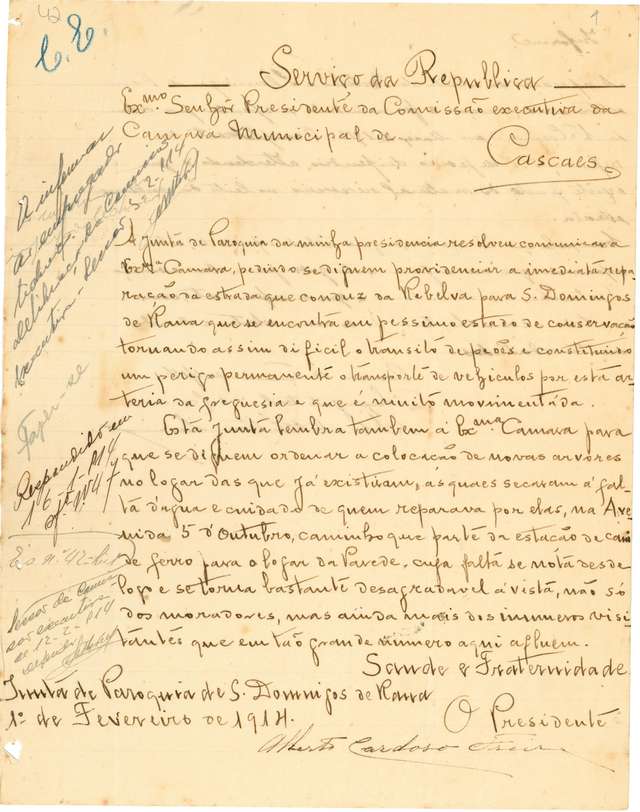 42
1
C. E.
Serviço da Republica
Exmo Senhôr Presidente da Comissão executiva da
Camara Municipal de
Cascaes
A Junta de Paroquia da minha presidencia resolveu comunicar a
Exma Camara, pedindo se dignem providenciar a immediata repa-
ração da estrada que conduz da Rebelva para S. Domingos
de Rana que se encontra em pessimo estado de conservação
tornando assim dificil o transito de peões e constituindo
um perigo permanente o transporte de vehiculos por esta ar-
teria da freguesia e que é muito movimentada.
Esta Junta lembra tambem á Exma Camara para
que se dignem ordenar a colocação de novas arvores
no logar das que já existiram, as quaes secaram á fal-
ta d'agua e cuidado de quem reparava por elas, na Ave-
nida 5 d'Outubro, caminho que parte da estação de cami-
de ferro para o logar da Parede, cuja falta se nota desde
logo e se torna bastante desagradavel á vista, não só
dos moradores, mas ainda mais dos inumeros visi-
tantes que em tão grande numero aqui afluem.
Saude e Fraternidade
Junta de Paroquia de S. Domingos de Rana
1º de Fevereiro de 1914.
O Presidente
Alberto Cardoso
A informar
deliberação da Comissão
executiva
5-2-914
Faça-se
Respondido em
16-2-914
of. nº 47
E. s. nº 42
Sessão da Comis-
são executiva
de 12-2-914